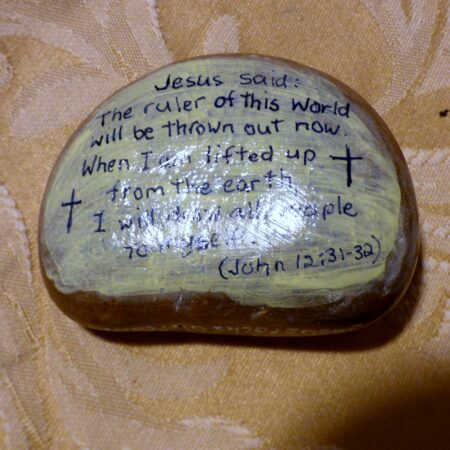 Jesus said:
The ruler of this world
will be thrown out now.
When I am lifted up
from the earth
I will draw all people
to myself.
(John 12:31-32)